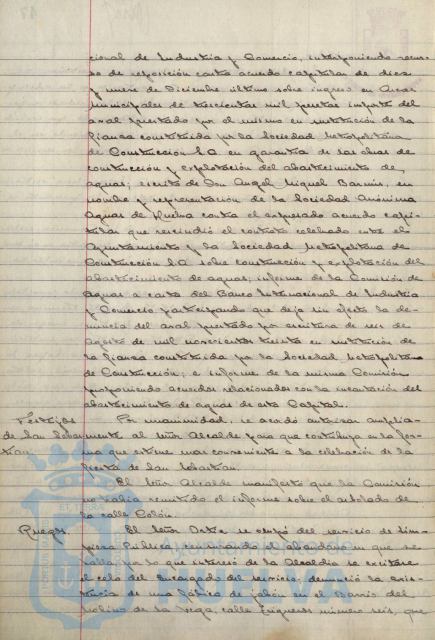 cional de Industria y Comercio, interponiendo recur-
so de reposición contra acuerdo capitular de diez
y nueve de Diciembre último sobre ingreso en Arcas
Municipales de trescientas mil pesetas importe del
aval prestado por el mismo en sustitución de la
fianza constituida por la Sociedad Metropolitana
de Construccion S.A. en garantía de las obras de
construcción y explotación del abastecimiento de
aguas; escrito de Don Angel Miguel en
nombre y representación de la Sociedad Anónima
Aguas de Huelva contra el expresado acuerdo capi-
tular que rescindió el contrato celebrado entre el
Ayuntamiento y la Sociedad Metropolitana de
Construcción S.A. sobre construcción y explotación del
abastecimiento de aguas; informe de la Comisión de
Aguas a carta del Banco Internacional de Industria
y Comercio participando que deja sin efecto la de-
nuncia del aval prestado por escritura de seis de
Agosto de mil novecientos treinta en sustitución de
la fianza constituida por la Sociedad Metropolitana
de Construcción; e informe de la misma Comisión
proponiendo acuerdos relacionados con la incautación del
abastecimiento de aguas de esta Capital.
Festejos Por unanimidad, se acordó autorizar amplia-
de San Sebas- mente al Señor Alcalde para que contribuya en la for-
tian. ma que estime mas conveniente a la celebración de la
fiesta de San Sebastian.
El Señor Alcalde manifestó que la Comisión
no había remitido el informe sobre el arbolado de
la calle Colón.
Ruegos. El Señor Ortiz se ocupó del servicio de Lim-
pieza Pública, censurando el abandono en que se
halla, por lo que interesó de la Alcaldía se excitare
el celo del Encargado del servicio; denunció la exis-
tencia de una fábrica de jabón en el Barrio del
Molino de la Vega, calle número seis, que